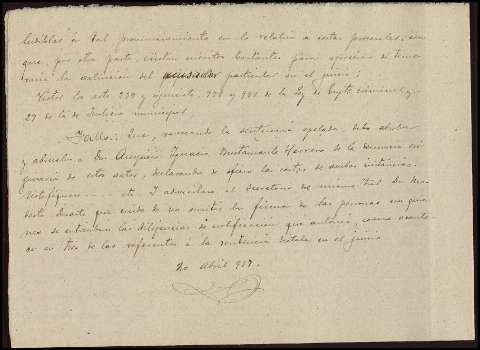 ludibles á tal pronunciamiento en lo relativo a costas procesales, sin
que, por otra parte, existan méritos bastantes para apreciar de teme-
raria la actuación del acusador particular en el juicio;
Vistos los arts 239 y siguientes, y 981 de la Ley de Enjto criminal y
29 de la de Justicia municipal,
Fallo: Que, revocando la sentencia apelada, debo absolver
y absuelvo á Dn Augusto Ignacio Bustamante Herrero de la denuncia ori-
ginaria de estos autos, declarando de oficio las costas de ambas instancias.
Notifíquese - - - etc. Y adviértase al Secretario de mismo Tral Dn
que cuide de no omitir la firma de las personas con quie-
nes se entiendan las diligencias de notificación que autorice, como aconte-
ce en tres de las referentes á la sentencia dictada en el juicio
20 Abril 917.